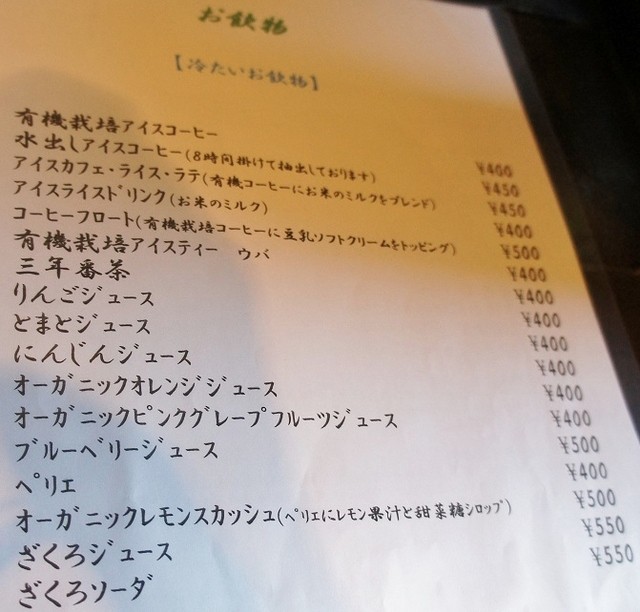 お飲物
【冷たいお飲物】
有機栽培アイスコーヒー ¥400
水出しアイスコーヒー(8時間掛けて抽出しております) ¥450
アイスカフェ・ライス・ラテ(有機コーヒーにお米のミルクをブレンド) ¥450
アイスライスドリンク(お米のミルク) ¥400
コーヒーフロート(有機栽培コーヒーに豆乳ソフトクリームをトッピング) ¥500
有機栽培アイスティー ウバ ¥400
三年番茶 ¥400
りんごジュース ¥400
とまとジュース ¥400
にんじんジュース ¥400
オーガニックオレンジジュース ¥400
オーガニックピンクグレープフルーツジュース ¥400
ブルーベリージュース ¥500
ペリエ ¥400
オーガニックレモンスカッシュ(ペリエにレモン果汁と甜菜糖シロップ) ¥500
ざくろジュース ¥550
ざくろソーダ ¥550